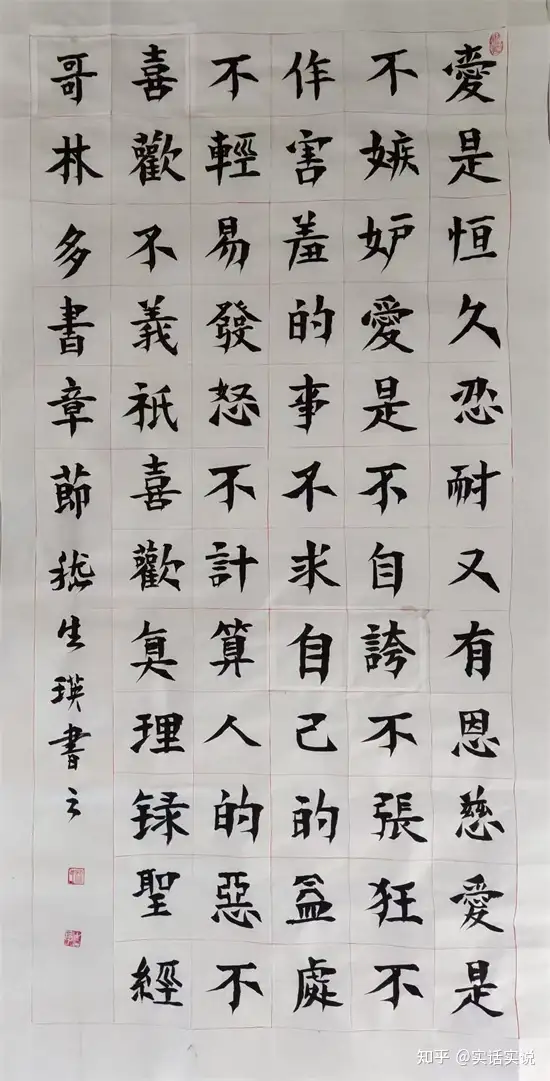 愛是恒久忍耐又有恩慈愛是
不嫉妒愛是不自誇不張狂不
作害羞的事不求自己的益處
不輕易發怒不計算人的惡不
喜歡不義衹喜歡真理録聖經
哥林多書章節
生瑛書云
知乎 @实话实说